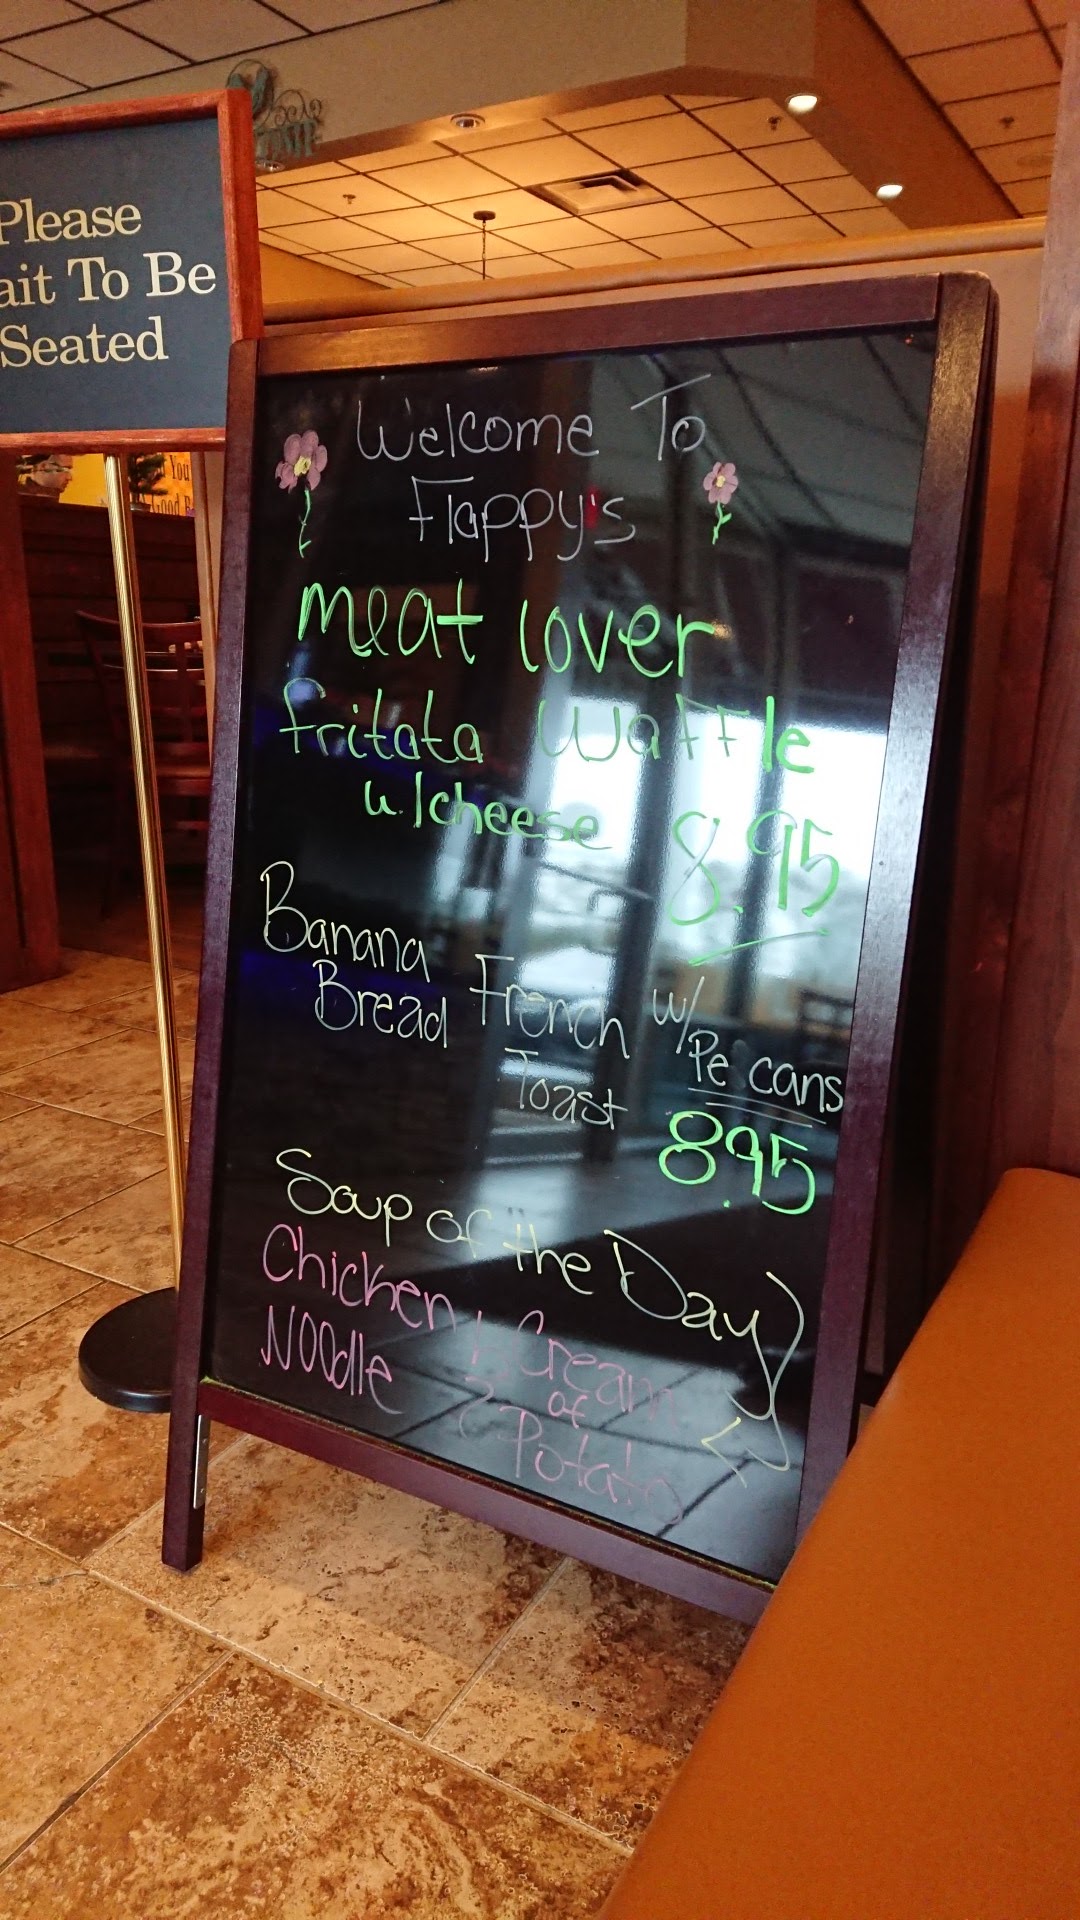 Please
ait To Be
Seated
Welcome To
Flappy's
meat lover
fritata Waffle
w/cheese 8.95
Banana
Bread French
Toast
w/
Pe'cans
8.95
Soup of the Day
Chicken
Noodle
&
Cream
of
Potato
You
Good